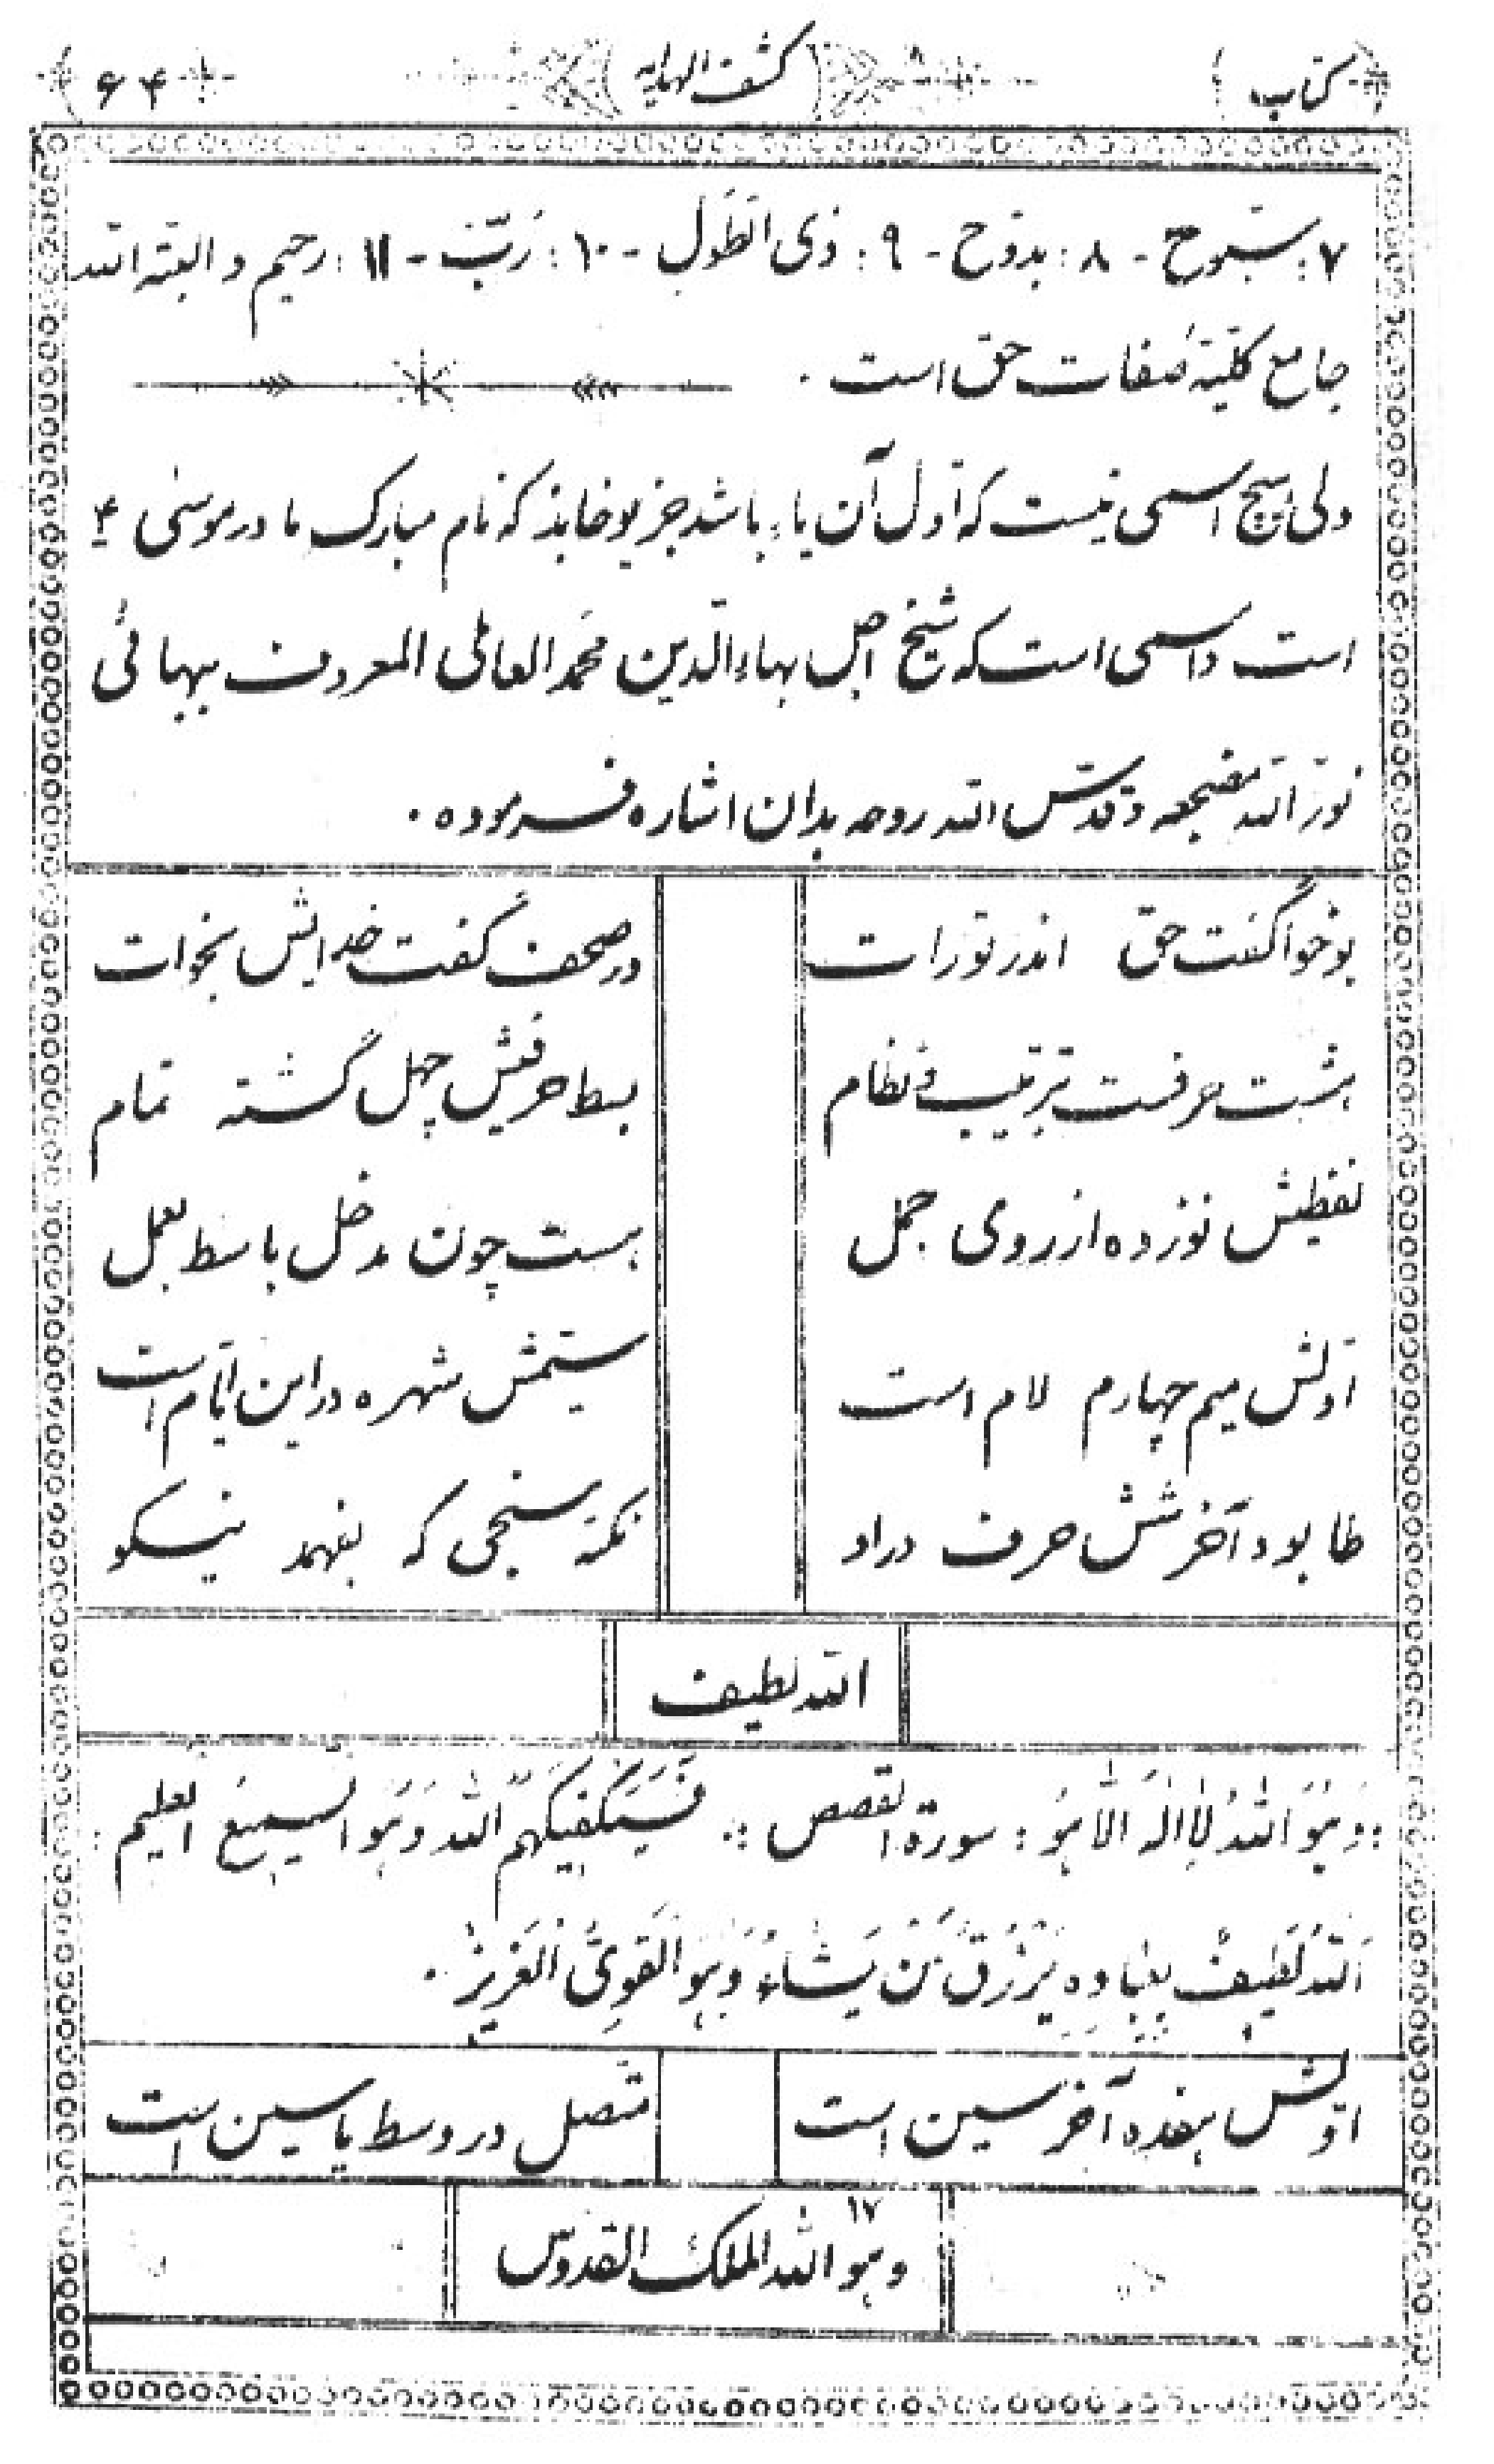 کتاب کشف الهدایه ۶۴
۷: سبّوح - ۸: بدوّح - ۹: ذی الطَول - ۱۰: رَبّ - ۱۱: رحیم و البتّه الله
جامع کلیّهٔ صفات حق است .
ولی هیچ اسمی نیست که اوّل آن یاء باشد جز یوخابذ که نام مبارک مادر موسی ۴
است و اسمی است که شیخ اجل بهاءالدّین محمّد العاملی المعروف ببهائی
نورّ الله مضجعه و قدّس الله روحه بدان اشاره فرموده .
یوخوا گفت حق اندر تورات در صحف گفت خدایش بخوات
هشت حرفست بترتیب و نظام بسط حرفیش چهل گشته تمام
نقطیش نوزده از روی جمل هست چون مدخل باسط بعمل
اوّلش میم چهارم لام است ستیمش شهره در این ایّام است
طا بود آخر شش حرف در او نکته سنجی که بفهمد نیکو
الله لطیف
: وَهُوَ اللهُ لا اله الّا هُوَ : سورة القصص :. فَسَیَکفیکَهُم الله وَهُو السمیعُ العلیم :
اَللهُ لَطیفٌ بِعِبادِهِ یَرْزُقُ مَنْ یَشاءُ وَهُوَ الْقَوِیُّ الْعَزیزُ .
اوّلش هفده آخر سین است متصل در وسط یاسین است
۱۷
وهو الله الملک القدوس